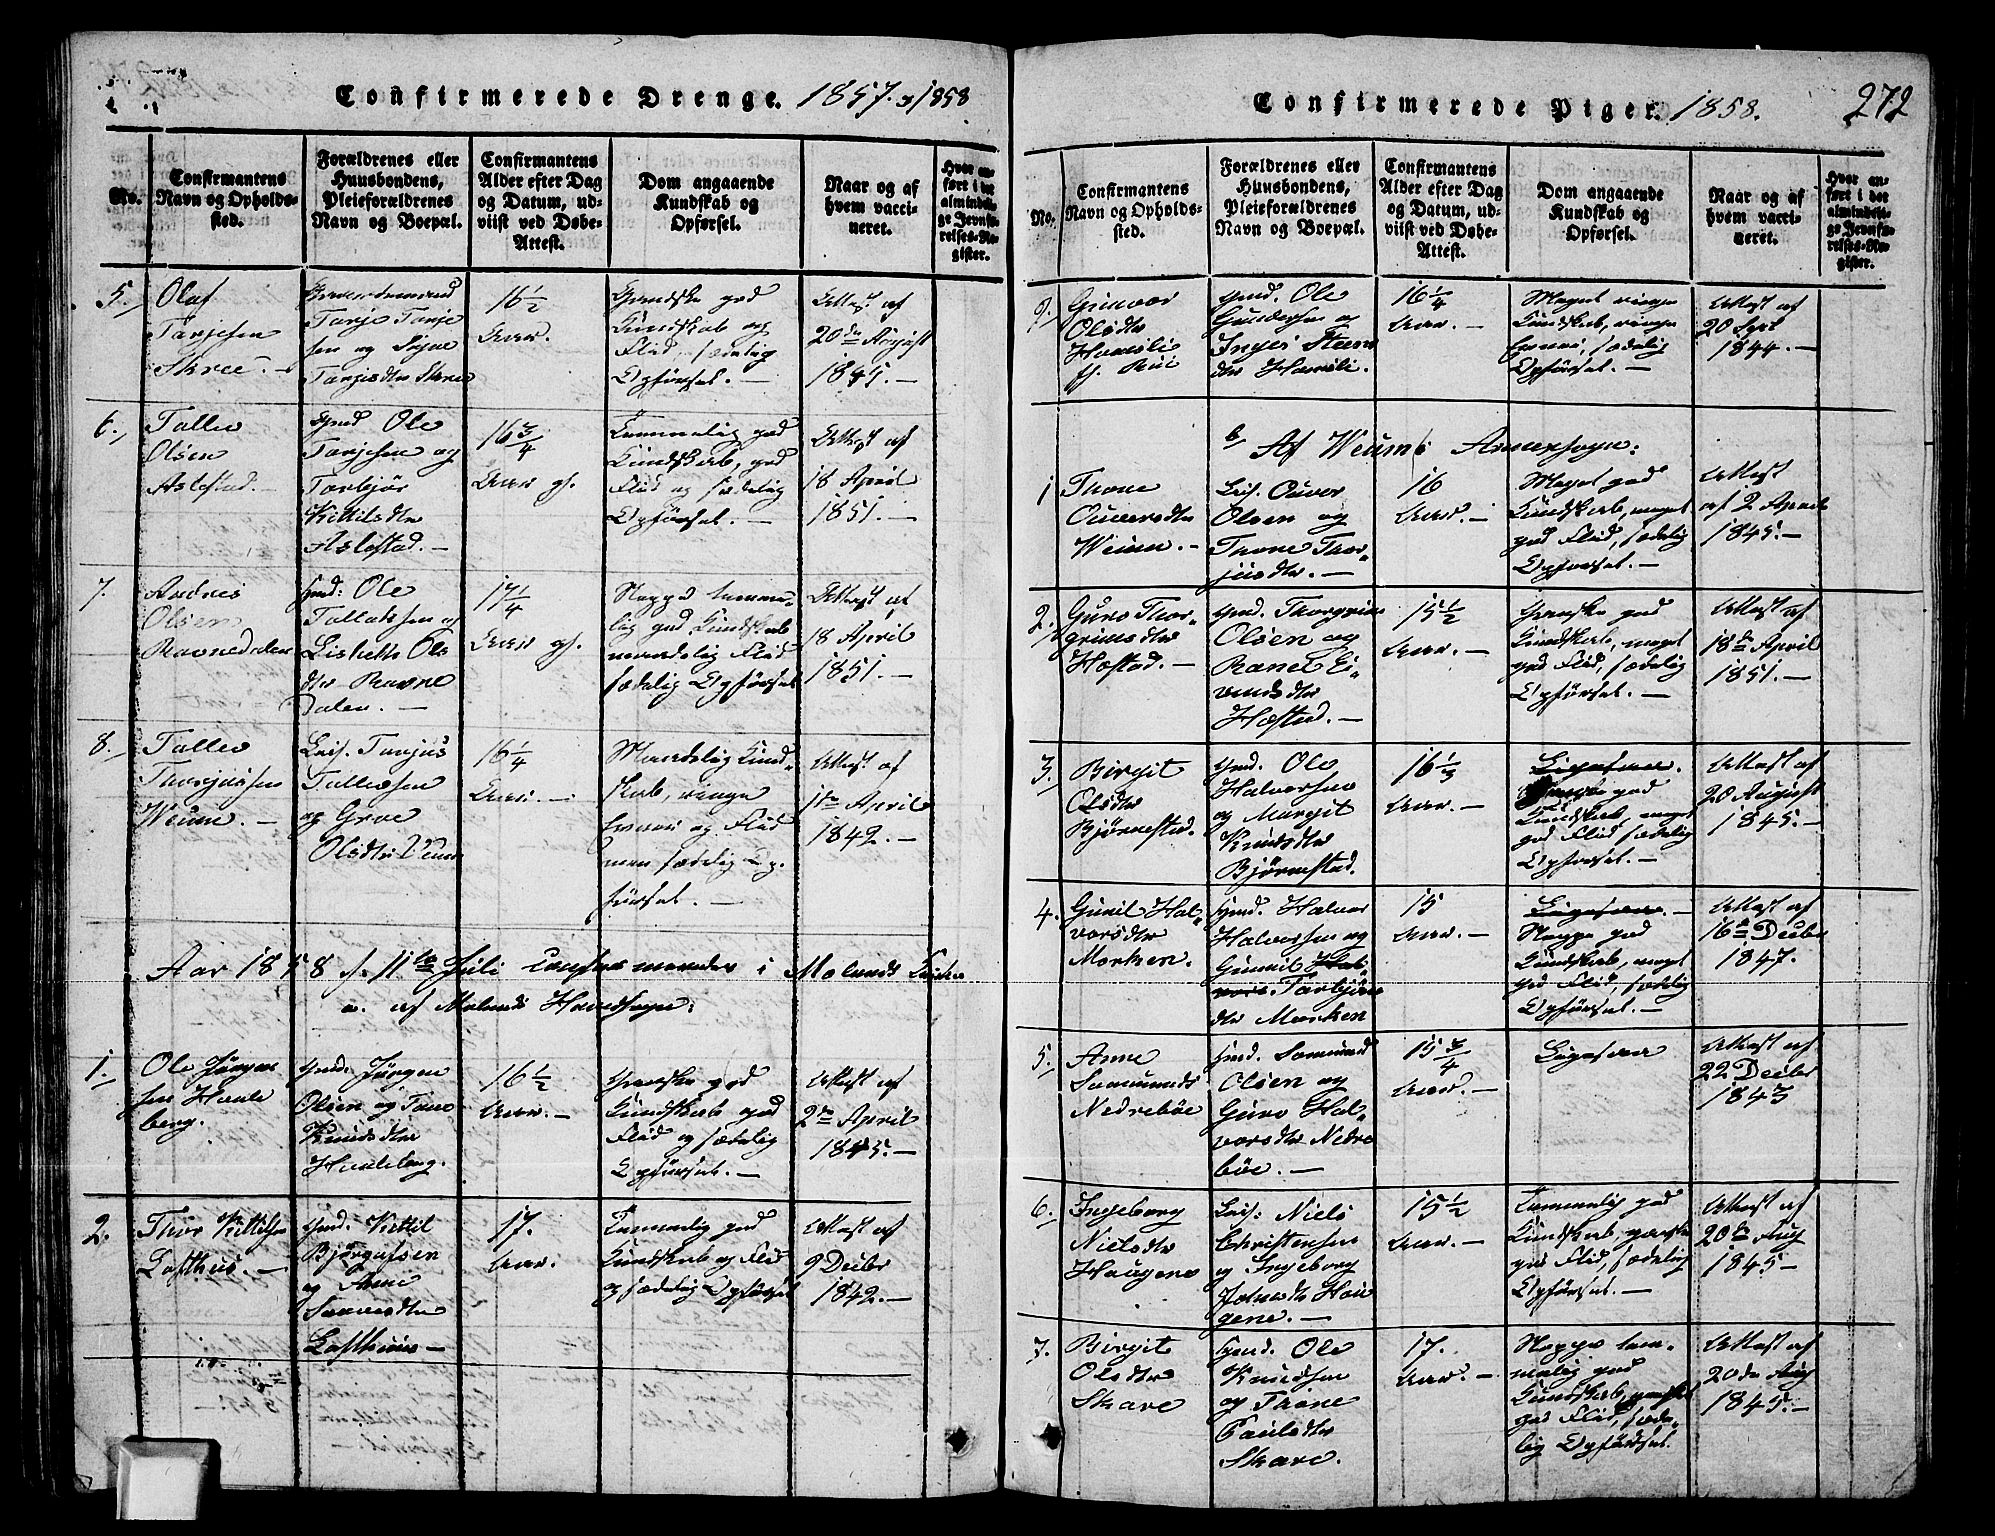 Confirmerede Drenge. 1857. & 1858
No.
Confirmantens
Navn og Opholds-
sted.
Forældrenes eller
Huusbondens,
Pleieforældrenes
Navn og Boepæl.
Confirmantens
Alder efter Dag
og Datum, ud-
viist ved Døbe-
Attest.
Dom angaaende
Kundskab og
Opførsel.
Naar og af
hvem vacci-
neret.
Hvor an-
ført i det
almindeli-
ge Jevnfø-
relses-Re-
gister.
5.
Olaf
Tarjesen
Skree. -
Gaardemand
Tarje Tarje
sen og Signe
Tarjesdtr Skree
16 1/2
Aar.
Ganske god
Kundskab og
Flid, sædelig
Opførsel. -
Attest af
20de August
1845. -
6.
Tallev
Olsen
Aslestad. -
Gmd Ole
Tarjesen og
Torbjør
Kittilsdtr
Aslestad. -
16 3/4
Aar gl.
Temmelig god
Kundskab, god
Flid og sædelig
Opførsel. -
Attest af
18 April
1851. -
7.
Andres
Olsen
Ravnedalen
Hmd: Ole
Tallaksen og
Lisbeth Ols
dtr Ravne
dalen. -
17 1/4
Aar gl.
Neppe temme-
lig god Kundskab
maadelig Flid
sædelig Opførsel
Attest af
18 April
1851. -
8.
Tallev
Thorjussen
Weum. -
Leis. Tarjus
Tallevsen
og Groe
Olsdtr Veum
16 1/4
Aar. -
Maadelig Kund-
skab, ringe
Evne og Flid
men sædelig Op-
førsel. -
Attest af
1ste April
1842. -
Aar 1858 d. 11te Juli Confirmerede i Molands Kirke
a. af Molands Hovedsogn:
1.
Ole Jørgen
sen Haule
berg.
Gmd. Jørgen
Olsen og Tone
Knudsdtr
Hauleberg.
16 1/2
Aar. -
Ganske god
Kundskab god
Flid og sædelig
Opførsel. -
Attest af
2den April
1845. -
2.
Thor Kittilsen
Lofthus. -
Gmd. Kittil
Bjørgufsen
og Anne
Saavesdtr
Lofthuus -
17.
Aar.
Temmelig god
Kundskab og Flid
og sædelig Opførsel
Attest af
9 Decbr
1842. -
Confirmerede Piger. 1858.
272
No.
Confirmantens
Navn og Opholds-
sted.
Forældrenes eller
Huusbondens,
Pleieforældrenes
Navn og Boepæl.
Confirmantens
Alder efter Dag
og Datum, ud-
viist ved Døbe-
Attest.
Dom angaaende
Kundskab og
Opførsel.
Naar og af
hvem vacci-
neret.
Hvor an-
ført i det
almindeli-
ge Jevnfø-
relses-Re-
gister.
9.
Gunvor
Olsdtr
Hamsli
Gmd. Ole
Gundersen og
Steen
dtr
16 1/4
Aar. -
Meget ringe
Kundskab, ringe
Evne, sædelig
Opførsel. -
Attest af
20 Sept
1844. -
b, Af Weums Annexsogn:
1
Thone
Ouversdtr
Weum. -
Leis. Ouver
Olsen og
Thone Thor-
jusdtr. -
16
Aar. -
Meget god
Kundskab, meget
god Flid, sædelig
Opførsel. -
Attest
af 2 April
1845. -
2.
Guro Thor-
grimsdtr
Høstad. -
Gmd. Thorgrim
Olsen og
Ranei Ei-
vindsdtr
Høstad. -
15 1/2
Aar. -
Ganske god
Kundskab, meget
god Flid, sædelig
Opførsel. -
Attest af
18de April
1851. -
3.
Birgit
Olsdtr
Bjørnestad.
Gmd. Ole
Halvorsen
og Margit
Knudsdtr
Bjørnestad.
16 1/3
Aar. -
Ligesaa.
god
Kundskab, meget
god Flid sædelig
Opførsel. -
Attest af
20 August
1845. -
4.
Gunil Hal-
vorsdtr
Morken.
Gmd. Halvor
Halvorsen og
Gunnil Hal-
vors. Torbjørns
dtr Morken
15
Aar. -
Ligesaa. -
Neppe god
Kundskab, meget
god Flid, sædelig
Opførsel. -
Attest af
16de Decbr
1847. -
5.
Anne
Samunds
Nedrebøe
Hmd. Samund
Olsen og
Guro Hal-
vorsdtr Nedre
bøe. -
15 3/4
Aar. -
Ligesaa
Attest af
22 Decbr
1843
6.
Ingeborg
Nielsdtr
Haugene
Leis: Niels
Christensen
og Ingeborg
Johnsdtr Hau
gene. -
15 1/2
Aar. -
Temmelig god
Kundskab, ganske
god Flid, sædelig
Opførsel. -
Attest af
20de Aug
1845 -
7.
Birgit
Olsdtr
Skare
Gmd. Ole
Knudsen
og Thone
Paulsdtr
Skare.
17.
Aar. -
Neppe tem-
melig god
Kundskab, ganske
god Flid, sæde-
lig Opførsel.
Attest af
20de Aug
1845. -